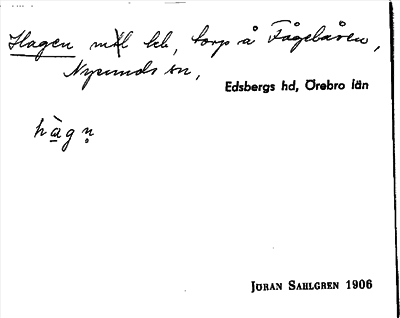 Hagen m&l kb, torp å Fågelåsen,
Nysunds sn,
Edsbergs hd, Örebro län
hàgn̥
JÖRAN SAHLGREN 1906